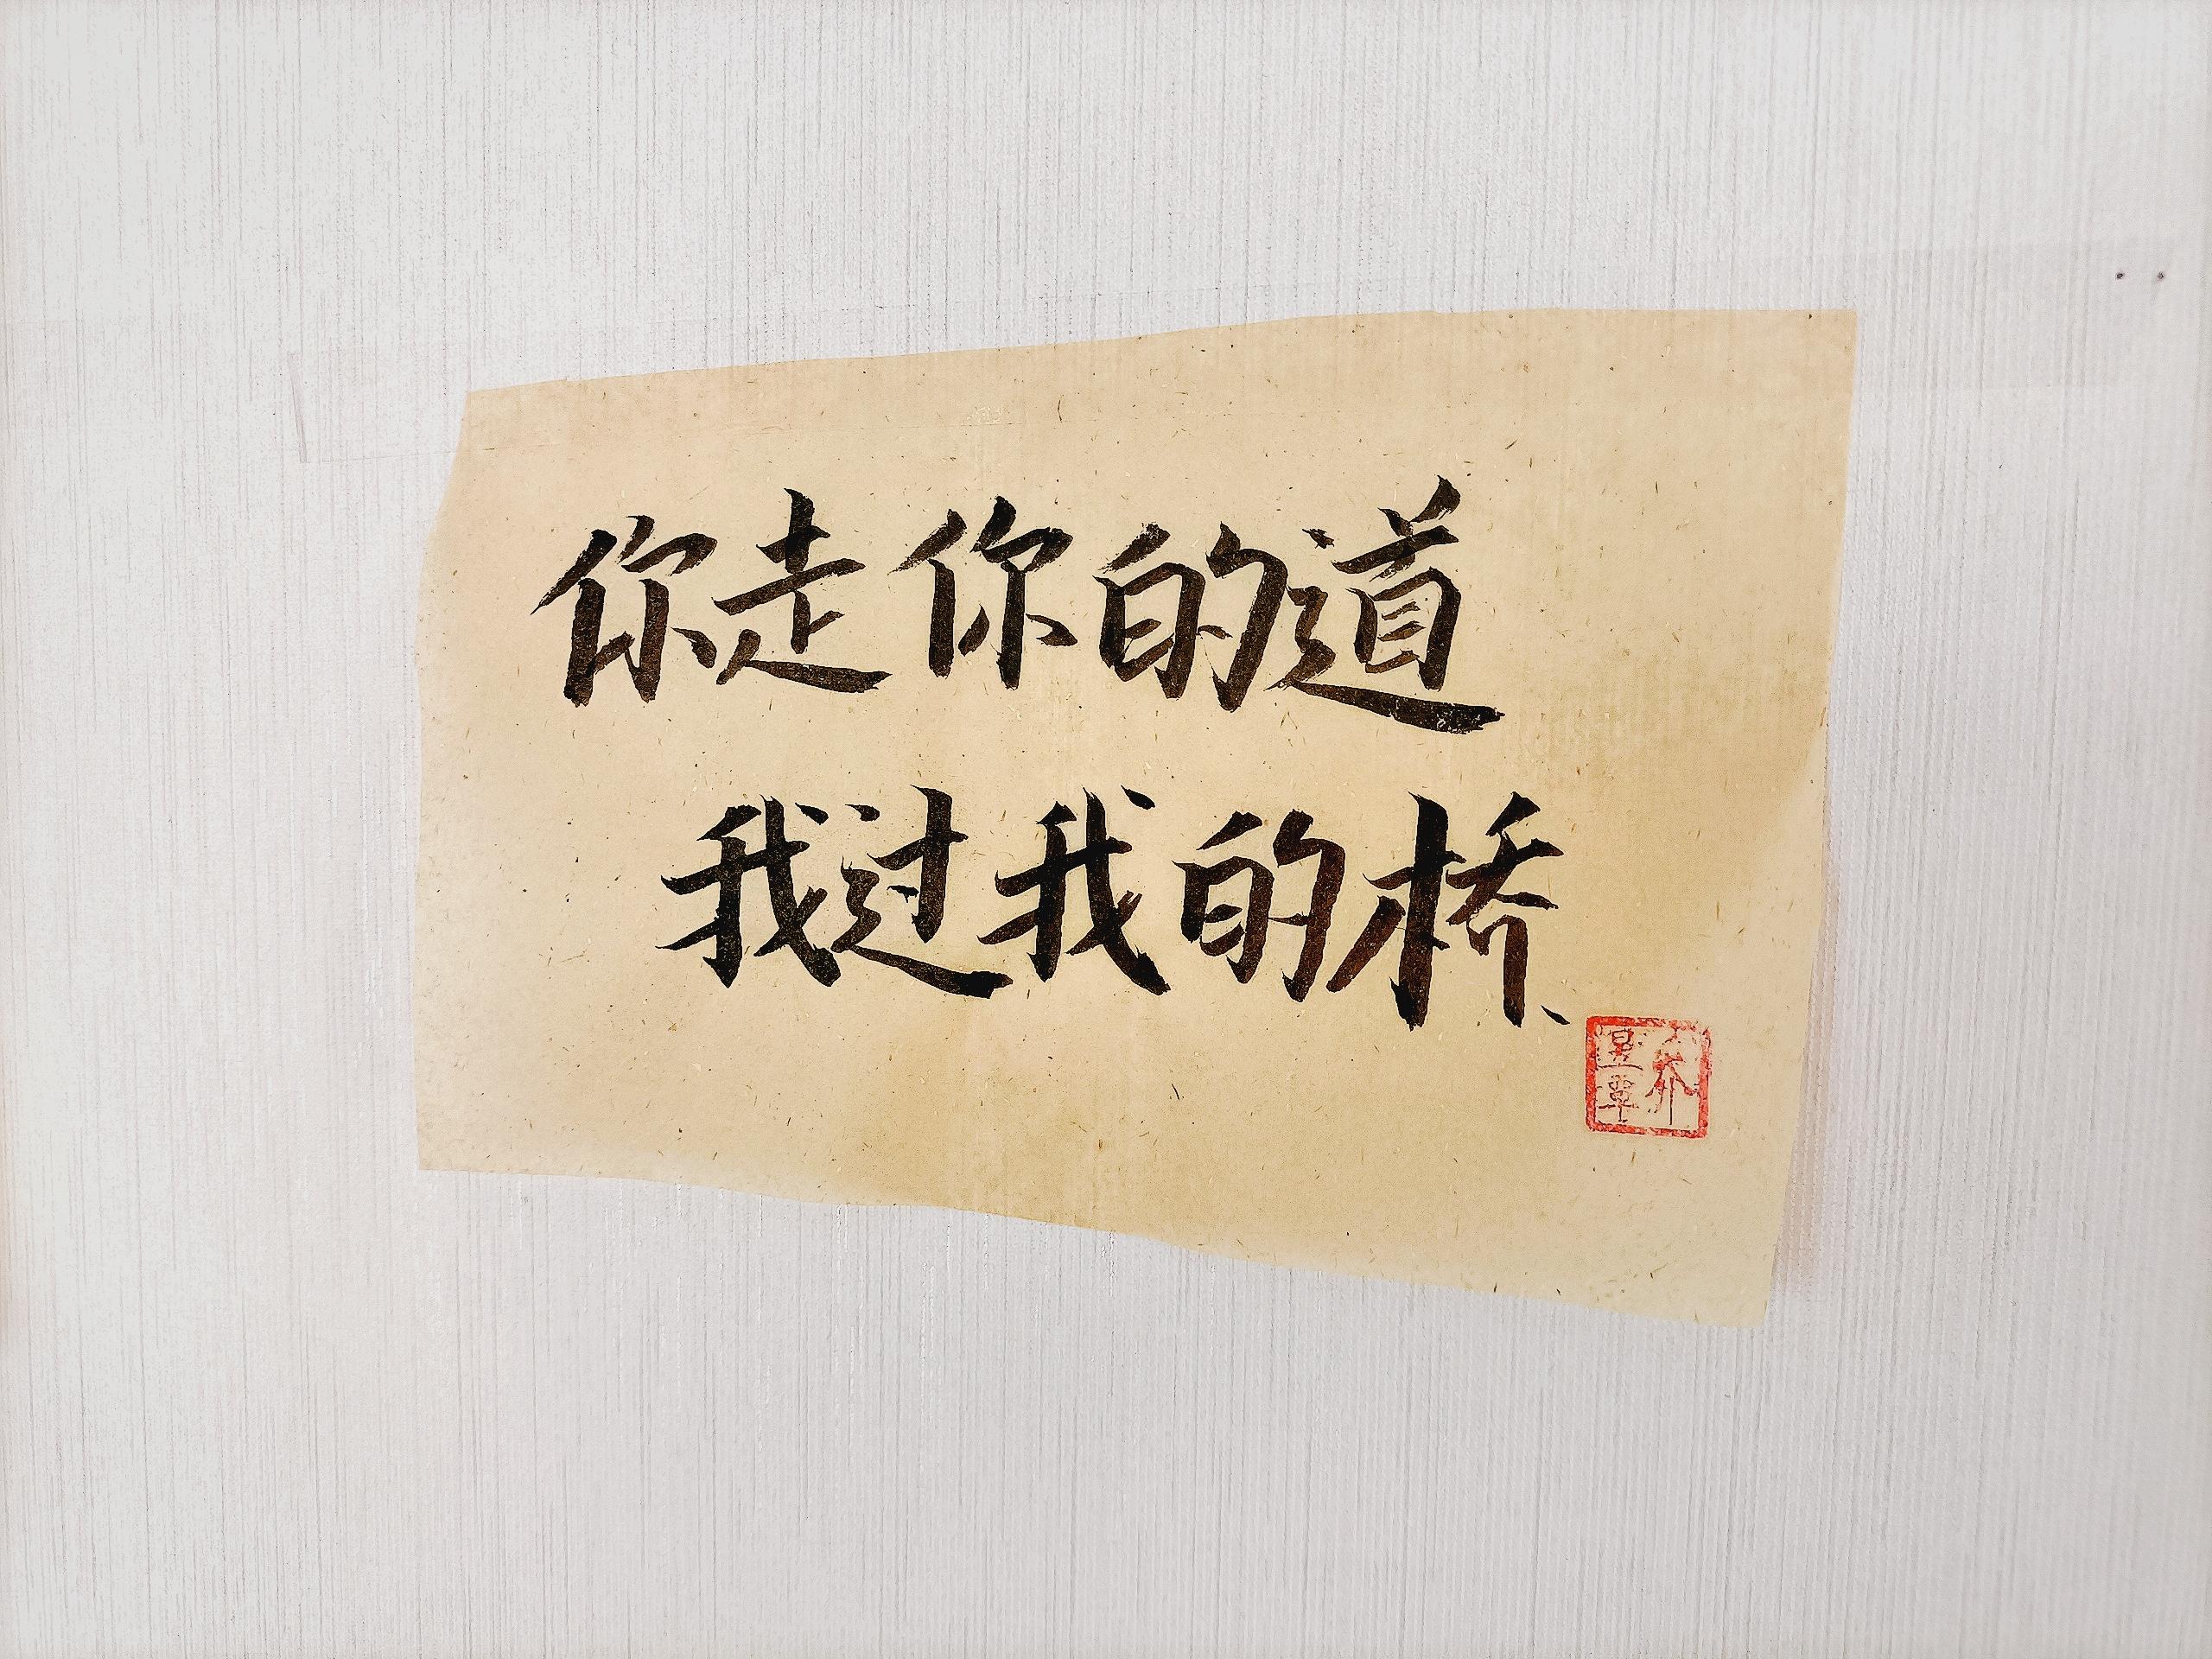 你走你的道
我过我的桥